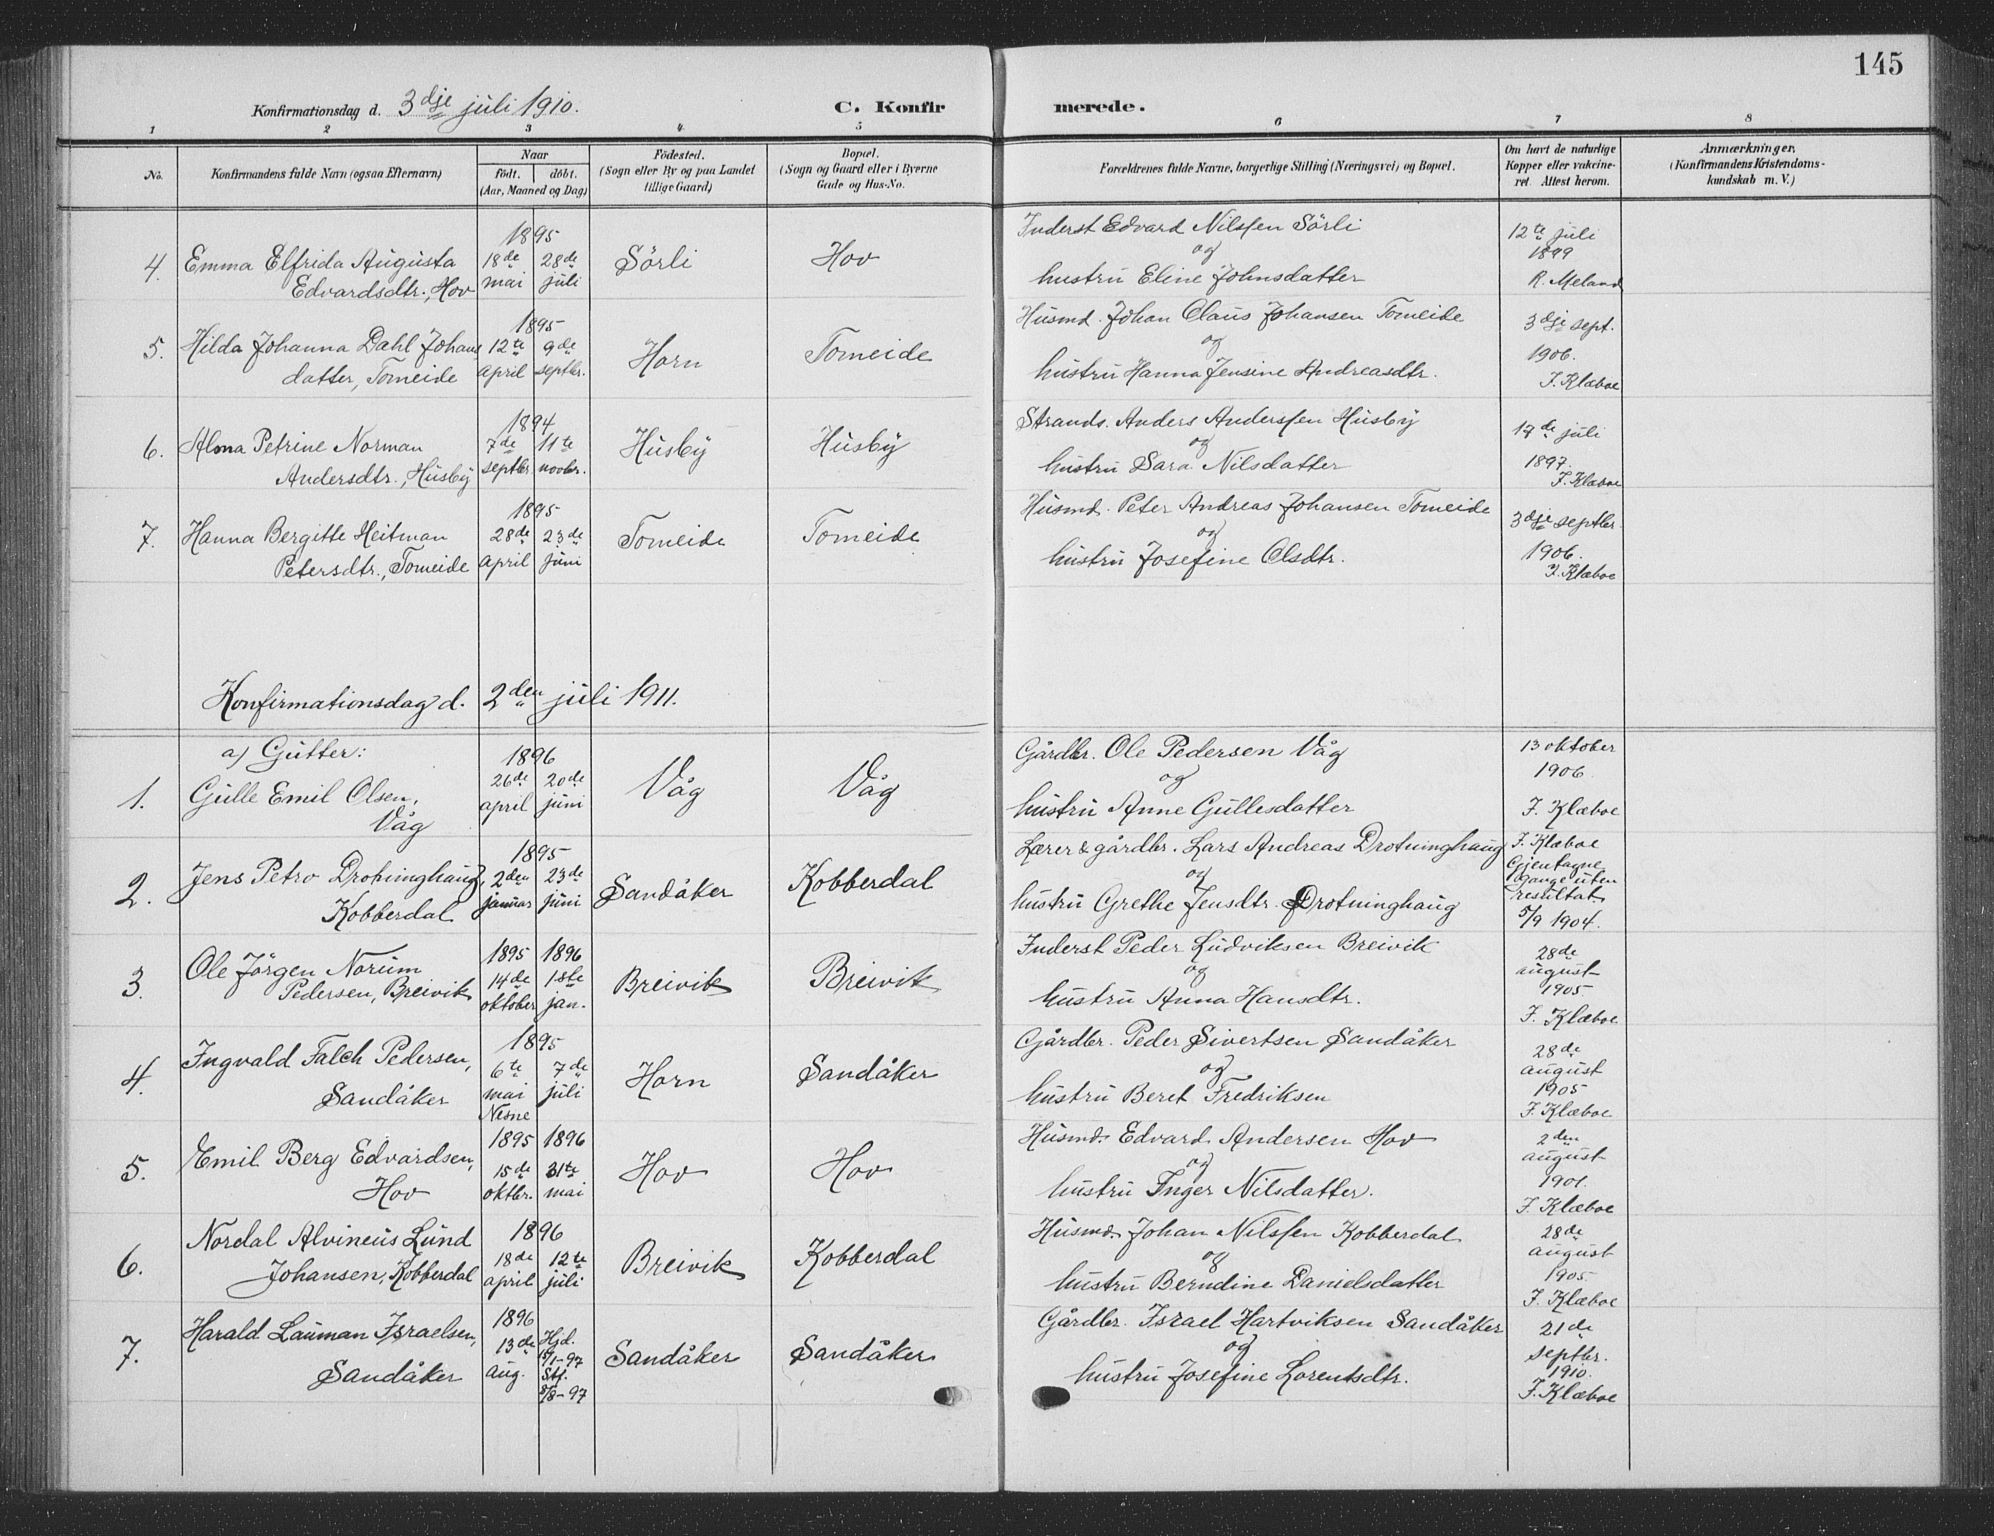 145
Konfirmationsdag d. 3dje juli 1910.
C. Konfirmerede.
1 2 3 4 5 6 7 8
No.
Konfirmandens fulde Navn (ogsaa Efternavn)
Naar
født. døbt.
(Aar, Maaned og Dag)
Fødested.
(Sogn eller By og paa Landet
tillige Gaard)
Bopæl.
(Sogn og Gaard eller i Byerne
Gade og Hus-No.
Forældrenes fulde Navne, borgerlige Stilling (Næringsvei) og Bopæl.
Om havt de naturlige
Kopper eller vakcine-
ret. Attest herom.
Anmærkninger.
(Konfirmandens Kristendoms-
kundskab m. V.)
4. Emma Elfrida Augusta
Edvardsdtr., Hov
1895
18de mai
28de juli
Sörli
Hov
Inderst Edvard Nilssen Sörli
og
hustru Eline Johnsdatter
12te juli
1899
R. Meland
5. Hilda Johanna Dahl Johans
datter, Tomeide
1895
12te april
9de septbr.
Horn
Tomeide
Husmd. Johan Claus Johansen Tomeide
og
hustru Hanna Jensine Andreasdtr.
3dje sept.
1906.
F. Klæboe
6. Alma Petrine Norman
Andersdtr., Husby
1894
7de septbr
11te novbr.
Husby
Husby
Strands. Anders Anderssen Husby
og
hustru Sara Nilsdatter
19de juli
1897.
F. Klæboe
7. Hanna Bergitte Heitman
Petersdtr., Tomeide
1895
28de april
23de juni
Tomeide
Tomeide
Husmd. Peter Andreas Johansen Tomeide
og
hustru Josefine Olsdtr.
3dje septbr.
1906.
F. Klæboe
Konfirmationsdag d. 2den juli 1911.
a) Gutter:
1. Gulle Emil Olsen,
Våg
1896
26de april
20de juni
Våg
Våg
Gårdbr. Ole Pedersen Våg
og
hustru Anne Gullesdatter
13 oktober
1906
F. Klæboe
2. Jens Petro Drotninghaug,
Kobberdal
1895
2den januar
23de juni
Sandåker
Kobberdal
Lærer & gårdbr. Lars Andreas Drotninghaug
og
hustru Grethe Jensdtr. Drotninghaug
F. Klæboe
Gjentagne
gange uten
resultat
5/9 1904.
3. Ole Jörgen Norum
Pedersen, Breivik
1895 1896
14de oktober
1ste jan.
Breivik
Breivik
Inderst Peder Ludviksen Breivik
og
hustru Anna Hansdtr.
28de
august
1905
F. Klæboe
4. Ingvald Falch Pedersen,
Sandåker
1895
6te mai
7de juli
Nesne
Horn
Sandåker
Gårdbr. Peder Sivertsen Sandåker
og
hustru Beret Fredriksen
28de
august
1905
F. Klæboe
5. Emil Berg Edvardsen,
Hov
1895 1896
15de oktbr.
31te mai
Hov
Hov
Husmd. Edvard Andersen Hov
og
hustru Inger Nilsdatter.
2den
august
1901.
F. Klæboe
6. Nordal Alvineus Lund
Johansen, Kobberdal
1896
18de april
12te juli
Breivik
Kobberdal
Husmd. Johan Nilssen Kobberdal
og
hustru Berndine Danielsdatter
28de
august
1905
F. Klæboe
7. Harald Lauman Israelsen,
Sandåker
1896
13de aug.
Hjd.
15/1-97
Stf.
8/8-97
Sandåker
Sandåker
Gårdbr. Israel Hartviksen Sandåker
og
hustru Josefine Lorentsdtr.
21de
septbr.
1910.
F. Klæboe